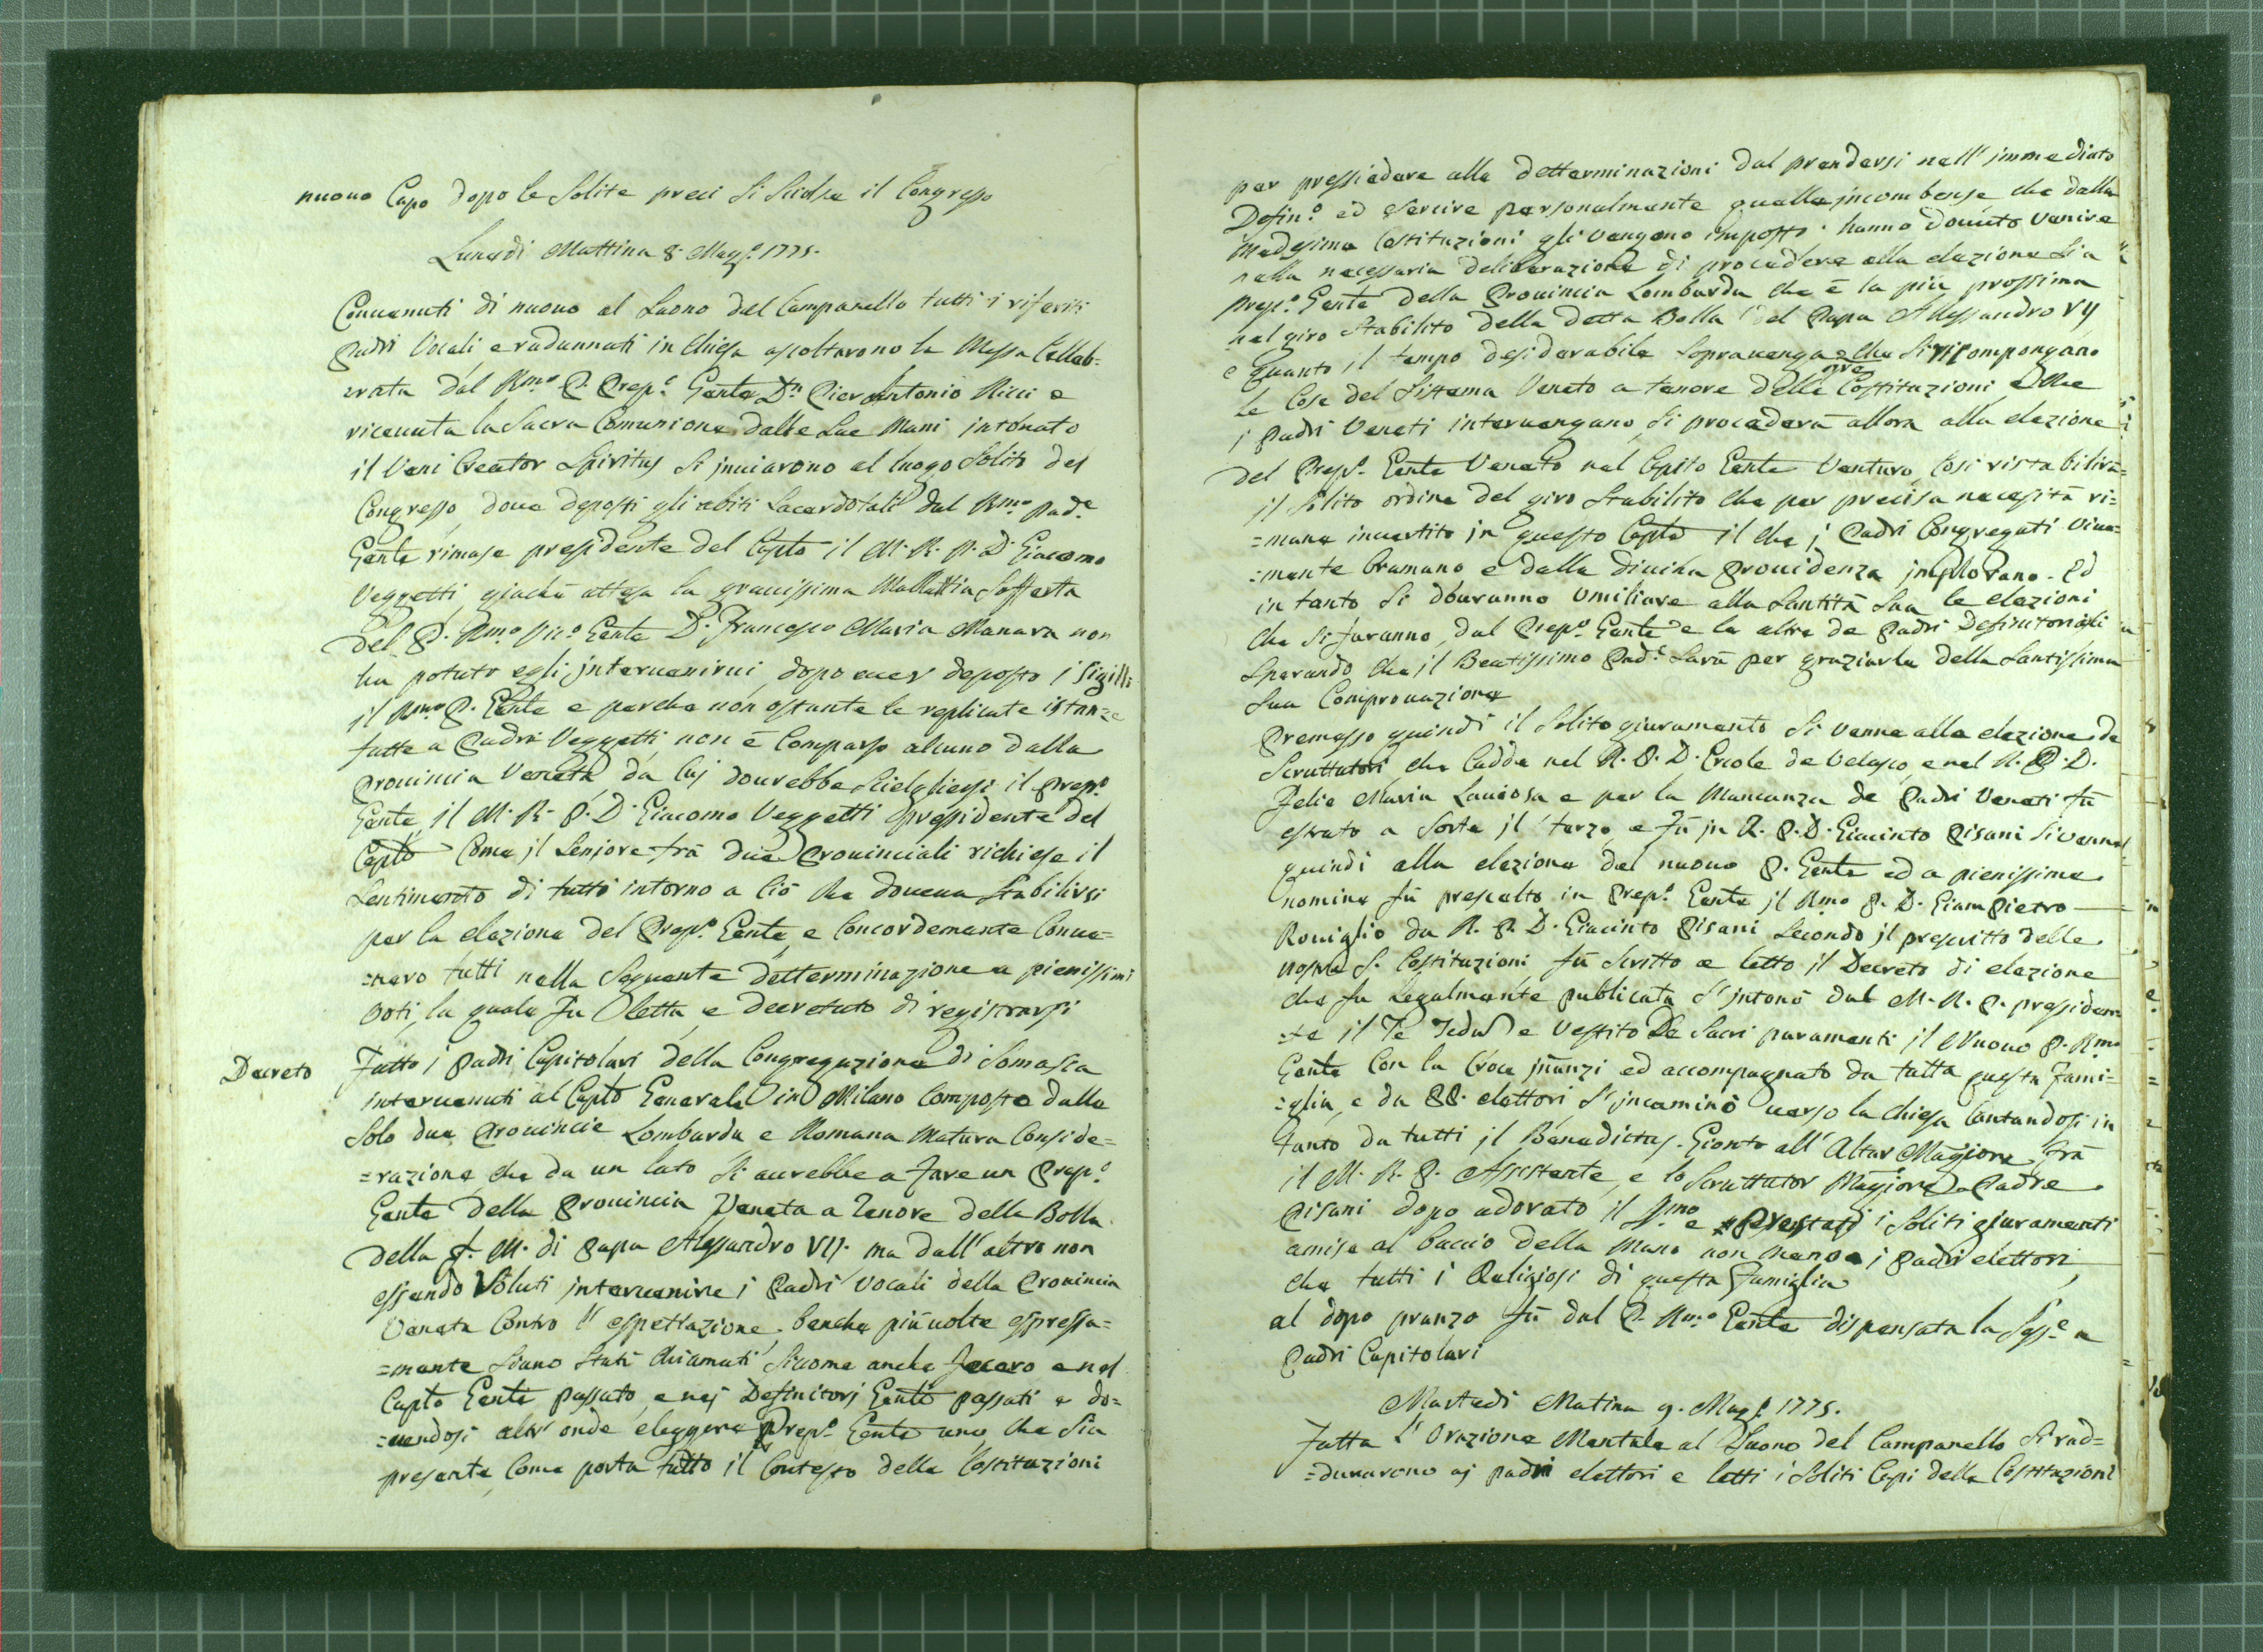 nuouo Capo dopo le Solite preci Si Sciolse il Congresso
Lunedi Mattina 8. Magg.º 1775.
Conuenuti di nuouo al Suono del Campanello tutti i riferiti
Padri Vocali e radunnati in Chiesa ascoltarono la Messa Celleb=
=rata dal Rmo P. Prep.º Gente Dn Pierantonio Ricci e
riceuuta la Sacra Comunione dalle Sue Mani intonato
il Veni Creator Spiritus Si inuiarono al luogo Solito del
Congresso, doue deposti gli abiti Sacerdotali dal Rmo Pad.e
Gente rimase presidente del Caplo il M. R. P. D. Giacomo
Veggetti, giachè attesa la grauissima Mallattia Sofferta
del P. Rmo Vic.º Gente D. Francesco Maria Manara non
ha potuto egli interuenirui, dopo auer deposto i Sigilli
il Rmo P. Gente e perche non ostante le replicate istanze
fatte a Padri Veggetti non è Comparso alcuno dalla
Prouincia Veneta da cui dourebbe Scielgliersi il Prep.º
Gente, il M. R. P. D. Giacomo Veggetti Presidente del
Caplo Come il Seniore frà due Prouinciali richiese il
Sentimento di tutti intorno a Ciò che doueua Stabilirsi
per la elezione del Prep.º Gente, e Concordemente Conue=
=nero tutti nella Seguente detterminazione a pienissimi
Voti, la quale fu letta, e decretato di registrarsi
Decreto Fatto i Padri Capitolari della Congregazione di Somasca
interuenuti al Caplo Generale in Milano Composto dalle
Solo due Prouincie Lombarda e Romana Matura Conside=
=razione che da un lato Si aurebbe a fare un Prep.º
Gente della Prouincia Veneta a Tenore della Bolla
della f. M. di Papa Alessandro VII. ma dall'altro non
essendo Voluti interuenire i Padri Vocali della Prouincia
Veneta Contro l'espettazione, benche più uolte espressa=
=mente Siano Stati Chiamati Sicome anche fecero e nel
Caplo Gente passato, e nei Definitorj Genti passati e do=
=uendosi altr'onde eleggere Prep.º Gente uno, che Sia
presente, Come porta tutto il Contesto delle Costituzioni
per pressiedere alle detterminazioni dal prendersi nell'immediato
Defin.º ed Seruire personalmente quelle incombense che dalle
medesime Costituzioni gli Vengono imposte. hanno douuto Venire
nella necessaria deliberazione di procedere alla elezione Sia
Prep.º Gente della Prouincia Lombarda che è la più prossima
nel giro Stabilito della detta Bolla del Papa Alessandro VII
e quanto il tempo desiderabile Soprauenga che Si ricompongano
le Cose del Sistema Veneto a tenore delle nre Costituzioni e che
i Padri Veneti interuengano, Si procederà allora alla elezione
del Prep.º Gente Veneto nel Caplto Gente Venturo, Cosi ristabilirà=
il Solito ordine del giro Stabilito che per precisa necessità ri=
=mane inuertito in questo Caplo il che i Padri Congregati Viua=
=mente bramano e dalla diuina Prouidenza implorano. Ed
in tanto Si douranno Umiliare alla Santità Sua le elezioni
che Si faranno, dal Prep.º Gente e le altre de Padri Definitoriali
Sperando che il Beatissimo Pad.e Sarà per graziarle della Santissima
Sua Comprouazione
Premesso quindi il Solito giuramento Si venne alla elezione de
Scruttatori che Cadde nel R. P. D. Ercole de Velasco, e nel R. P. D.
Felie Maria Lauiosa e per la Mancanza de Padri Veneti fù
estrato a Sorte il terzo e fù in R. P. D. Giacinto Pisani Si venne
quindi alla elezione del nuouo P. Gente ed a pienissime
nomine fù prescelto in Prep.º Gente il Rmo P. D. Giampietro
Rouiglio da R. P. D. Giacinto Pisani Secondo il prescritto delle
nostre S. Costituzioni fù Scritto e letto il Decreto di elezione
che fu Legalmente publicata S'intonò dal M. R. P. presiden=
=te il Te Deum e Vestito De Sacri paramenti il Nuouo P. Rmo
Gente Con la Croce inanzi ed accompagnato da tutta questa fami=
=glia, e da PP. elettori S'incaminò uerso la Chiesa Cantandosi in
tanto da tutti il Benedictus. Gionto all'Altar Maggiore frà
il M. R. P. Assistente, e lo Scruttator Maggiore Padre
Pisani dopo adorato il Ssmo e prestati i Soliti giuramenti
amise al baccio della Mano non meno i Padri elettori,
che tutti i Religiosi di questa Famiglia
al dopo pranzo fù dal P. Rmo Gente dispensata la Sess.e a
Padri Capitolari
Martedi Matina 9. Magg.º 1775.
Fatta l'Orazione Mentale al Suono del Campanello Si rad=
=dunarono ai padri elettori e letti i Soliti Capi delle Costituzioni